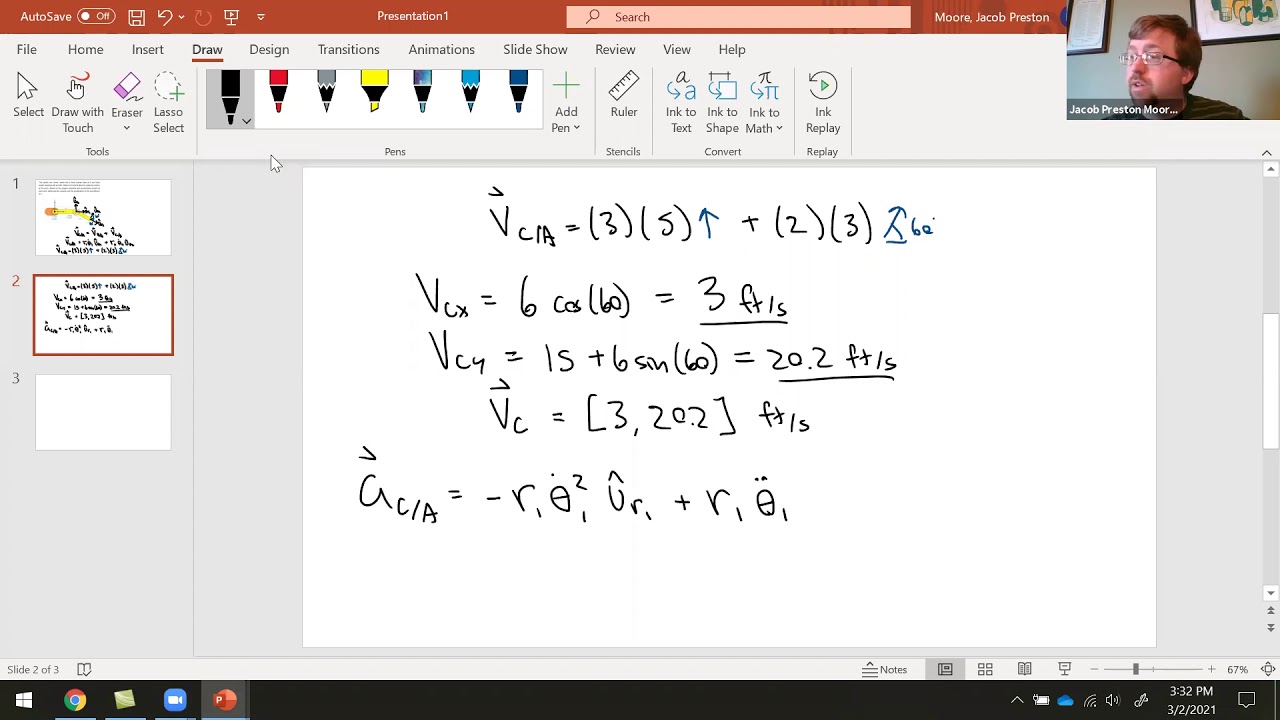 AutoSave Off Presentation1 Search Moore, Jacob Preston
File Home Insert Draw Design Transitions Animations Slide Show Review View Help
Select Draw with Touch Eraser Lasso Select Add Pen Ruler Ink to Text Ink to Shape Ink to Math Ink Replay
Tools Pens Stencils Convert Replay
Jacob Preston Moor...
1
2
3
V⃗C/A = (3)(5)↑ + (2)(3) 60°
Vcx = 6 cos(60) = 3 ft/s
Vcy = 15 + 6 sin(60) = 20.2 ft/s
V⃗c = [3, 20.2] ft/s
a⃗C/A = -r₁ θ̇₁² û_r₁ + r₁ θ̈₁
Slide 2 of 3 Notes 67%
3:32 PM
3/2/2021